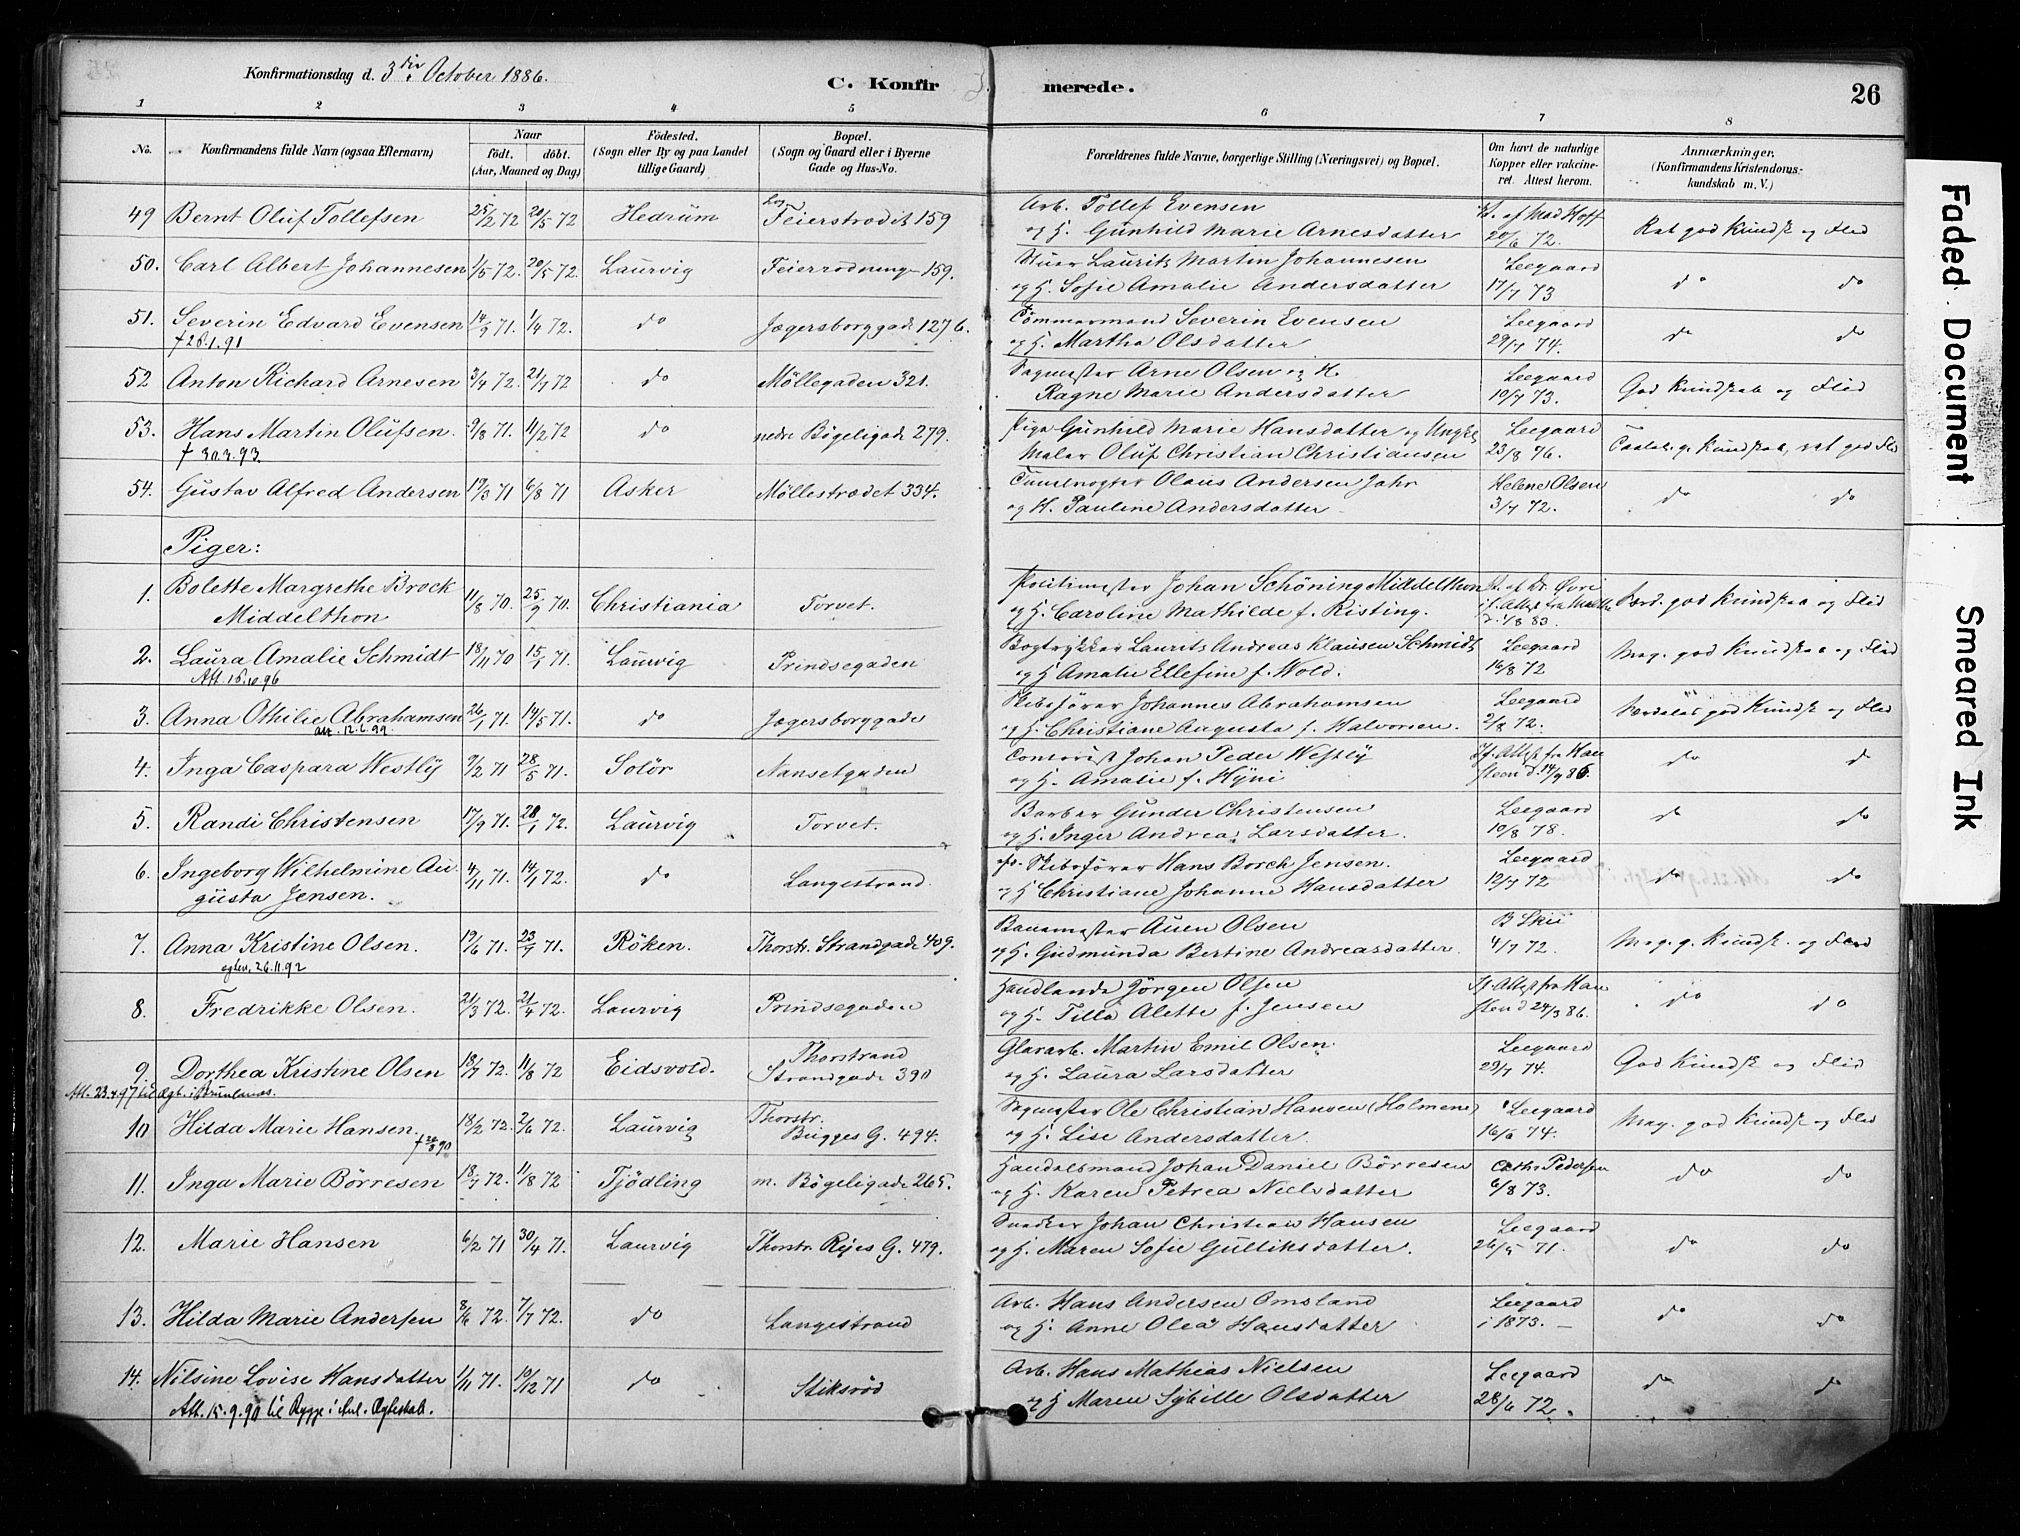 Konfirmationsdag d. 3die October 1886.
C. Konfirmerede.
26
1 2 3 4 5 6 7 8
No.
Konfirmandens fulde Navn (ogsaa Efternavn)
Naar
födt. döbt.
(Aar, Maaned og Dag)
Födested.
(Sogn eller By og paa Landet
tillige Gaard)
Bopæl.
(Sogn og Gaard eller i Byerne
Gade og Hus-No.
Forældrenes fulde Navne, borgerlige Stilling (Næringsvei) og Bopæl.
Om havt de naturlige
Kopper eller vakcine-
ret. Attest herom.
Anmærkninger.
(Konfirmandens Kristendoms-
kundskab m. V.)
49 Bernt Oluf Tollefsen 25/2 72 20/5 72 Hedrum Feierstrædet 159 Arb. Tollef Evensen
og H. Gunhild Marie Arnesdatter 20/6 72. Ret god Kundsk og Flid
50. Carl Albert Johannesen 1/5 72. 20/5 72. Laurvig Feierrodningn 159. Laurits Martin Johannesen Leegaard
og H. Sofie Amalie Andersdatter 17/7 73 do do
51. Severin Edvard Evensen 14/9 71. 1/4 72. do Jægersborggade 1276. Tömmermand Severin Evensen Leegaard
† 28.1.91 og H. Martha Olsdatter 29/7 74. do do
52 Anton Richard Arnesen 3/4 72. 21/7 72 do Möllegaden 321. Sagmester Arne Olsen og H. Leegaard
Ragne Marie Andersdatter 10/7 73. God Kundskab og Flid
53. Hans Martin Olufsen. 9/8 71. 11/2 72 do nedre Bögeligade 279. Pige Gunhild Marie Hansdatter og Ungk. Leegaard
† 30.3.93. Maler Oluf Christian Christiansen 23/8 76. Kundskab, ret god Flid
54. Gustav Alfred Andersen 19/3 71 6/8 71 Asker Möllestrædet 334. Olaus Andersen Jahr Helene Olsen
og H. Pauline Andersdatter 3/7 72. do do
Piger:
1. Bolette Margrethe Brock 11/8 70. 25/9 70. Christiania Torvet. Politimester Johan Schöning Middelthon
Middelthon og H. Caroline Mathilde f. Risting. god Kundskab og Flid
2. Laura Amalie Schmidt 18/11 70 15/1 71. Laurvig Prindsegaden Bogtrykker Laurits Andreas Klausen Schmidt Leegaard
Att. 18.10 96 og H Amalie Ellefine f. Wold. 16/8 72 Meg. god Kundskab og Flid
3. Anna Othilie Abrahamsen 26/1 71. 14/5 71. do Jægersborggade Skibsförer Johannes Abrahamsen Leegaard
att. 12.6.99 og H. Christiane Augusta f. Halvorsen. 2/8 72. Særdeles god Kundsk og Flid
4. Inga Caspara Westly 9/2 71 28/5 71. Solör Nansetgaden Contorist Johan Peder Westly
og H. Amalie f. Hyni do d
5. Randi Christensen 17/9 71. 28/1 72. Laurvig Torvet. Barber Gunder Christensen Leegaard
og H. Inger Andrea Larsdatter. 10/8 78. do do
6. Ingeborg Wilhelmine Au- 4/11 71. 14/1 72. do Langestrand. Skibsförer Hans Borch Jensen. Leegaard
gusta Jensen. og H Christiane Johanne Hansdatter 12/7 72 do do
7. Anna Kristine Olsen. 19/6 71. 23/7 71. Röken. Thorstr. Strandgade 409. Banemester Auen Olsen B Skii
26.11.92 og H. Gudmunda Bertine Andreasdatter. 4/7 72. Meg. g. Kundsk. og Flid
8. Fredrikke Olsen. 21/3 72. 21/4 72. Laurvig Prindsegaden Handlende Jörgen Olsen
og H. Tilla Alette f. Jensen 24/3 86. do do
9. Dorthea Kristine Olsen 18/7 72. 11/8 72 Eidsvold. Thorstrand
Strandgade 390 Glasarb. Martin Emil Olsen. Leegaard
Att. 23.4.97 til Ægt. i Brunlanes. og H. Laura Larsdatter 29/7 74. God Kundsk og Flid
10 Hilda Marie Hansen. 18/2 72. 2/6 72. Laurvig Thorstr.
Bugges G. 494. Sagmester Ole Christian Hansen (Holmene) Leegaard
og H. Lise Andersdatter. 16/6 74. Meg. god Kundsk og Flid
11. Inga Marie Börresen 18/7 72. 11/8 72 Tjödling m. Bögeligade 265. Handelsmand Johan Daniel Börresen Cathr Pedersen
og H. Karen Petrea Nielsdatter 6/8 73. do do
12. Marie Hansen 6/2 71 30/4 71. Laurvig Thorstr. Ryes G. 479. Snedker Johan Christian Hansen Leegaard
og H. Maren Sofie Gulliksdatter. 26/5 71. do do
13. Hilda Marie Andersen 8/6 72. 7/7 72. do Langestrand Arb. Hans Andersen Omsland Leegaard
og H. Anne Olea Hansdatter i 1873. do do
14. Nilsine Lovise Hansdatter 1/11 71. 10/12 71 do Stiksröd Arb. Hans Mathias Nielsen Leegaard
Att. 15.9.90 til Rygge i Anl. Ægteskab. og H Maren Sybille Olsdatter 28/6 72. do do
Faded Document
Smeared Ink